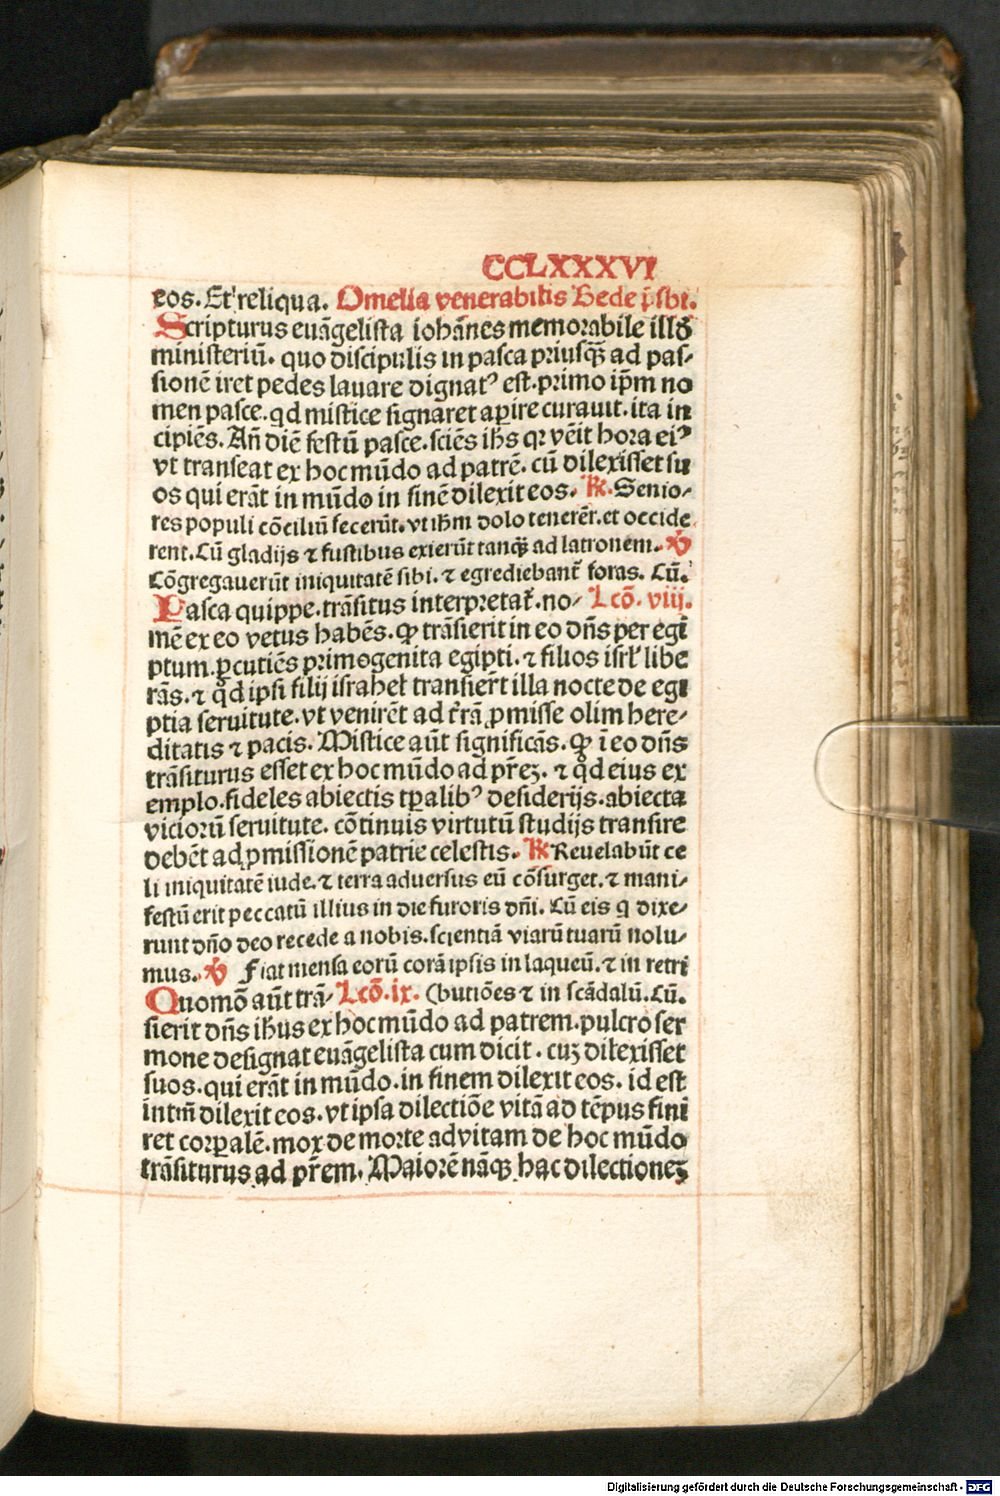 CCLXXXVI
eos. Et reliqua. Omelia venerabilis Bede p̄sbi.
Scripturus euāgelista iohānes memorabile illd̄
ministeriū. quo discipulis in pasca priusqȝ̄ ad pas-
sionē iret pedes lauare dignatꝰ est. primo ip̄m no
men pasce. qd mistice signaret aꝑire curauit. ita in
cipiēs. An̄ diē festū pasce. sciēs ih̄s qꝛ vēit hora eiꝰ
vt transeat ex hoc mūdo ad patrē. cū dilexisset su
os qui erāt in mūdo in finē dilexit eos. ℞. Senio-
res populi cōciliū fecerūt. vt ih̄m dolo tenerēt. et occide
rent. Cū gladijs ⁊ fustibus exierūt tanqȝ̄ ad latronem. ℣
Cōgregauerūt iniquitatē sibi. ⁊ egrediebant̄ foras. Cū.
Pasca quippe. trāsitus interpretat̄. no- Lcō. viij.
mē ex eo vetus habēs. ꝙ trāsierit in eo dn̄s per egi
ptum. ꝑcutiēs primogenita egipti. ⁊ filios isrl̄ libe
rās. ⁊ qd̄ ipsi filij israhel transier̄t illa nocte de egi
ptia seruitute. vt venirēt ad t̄rā ꝓmisse olim here-
ditatis ⁊ pacis. Mistice aūt significās. ꝙ ī eo dn̄s
trāsiturus esset ex hoc mūdo ad pr̄eꝫ. ⁊ qd̄ eius ex
emplo. fideles abiectis tꝑalibꝰ desiderijs. abiecta
viciorū seruitute. cōtinuis virtutū studijs transire
debēt ad ꝓmissionē patrie celestis. ℞ Reuelabūt ce
li iniquitatē iude. ⁊ terra aduersus eū cōsurget. ⁊ mani-
festū erit peccatū illius in die furoris dn̄i. Cū eis q̄ dixe-
runt dn̄o deo recede a nobis. scientiā viarū tuarū nolu-
mus. ℣ Fiat mensa eorū corā ipsis in laqueū. ⁊ in retri
Quomō aūt trā- Lcō. ix. (butiōes ⁊ in scādalū. Cū.
sierit dn̄s ih̄us ex hoc mūdo ad patrem. pulcro ser
mone designat euāgelista cum dicit. cuꝫ dilexisset
suos. qui erāt in mūdo. in finem dilexit eos. id est
intm̄ dilexit eos. vt ipsa dilectiōe vitā ad tēpus fini
ret corꝑalē. mox de morte ad vitam de hoc mūdo
trāsiturus ad pr̄em. Maiorē nāqȝ hac dilectioneꝫ
Digitalisierung gefördert durch die Deutsche Forschungsgemeinschaft - DFG